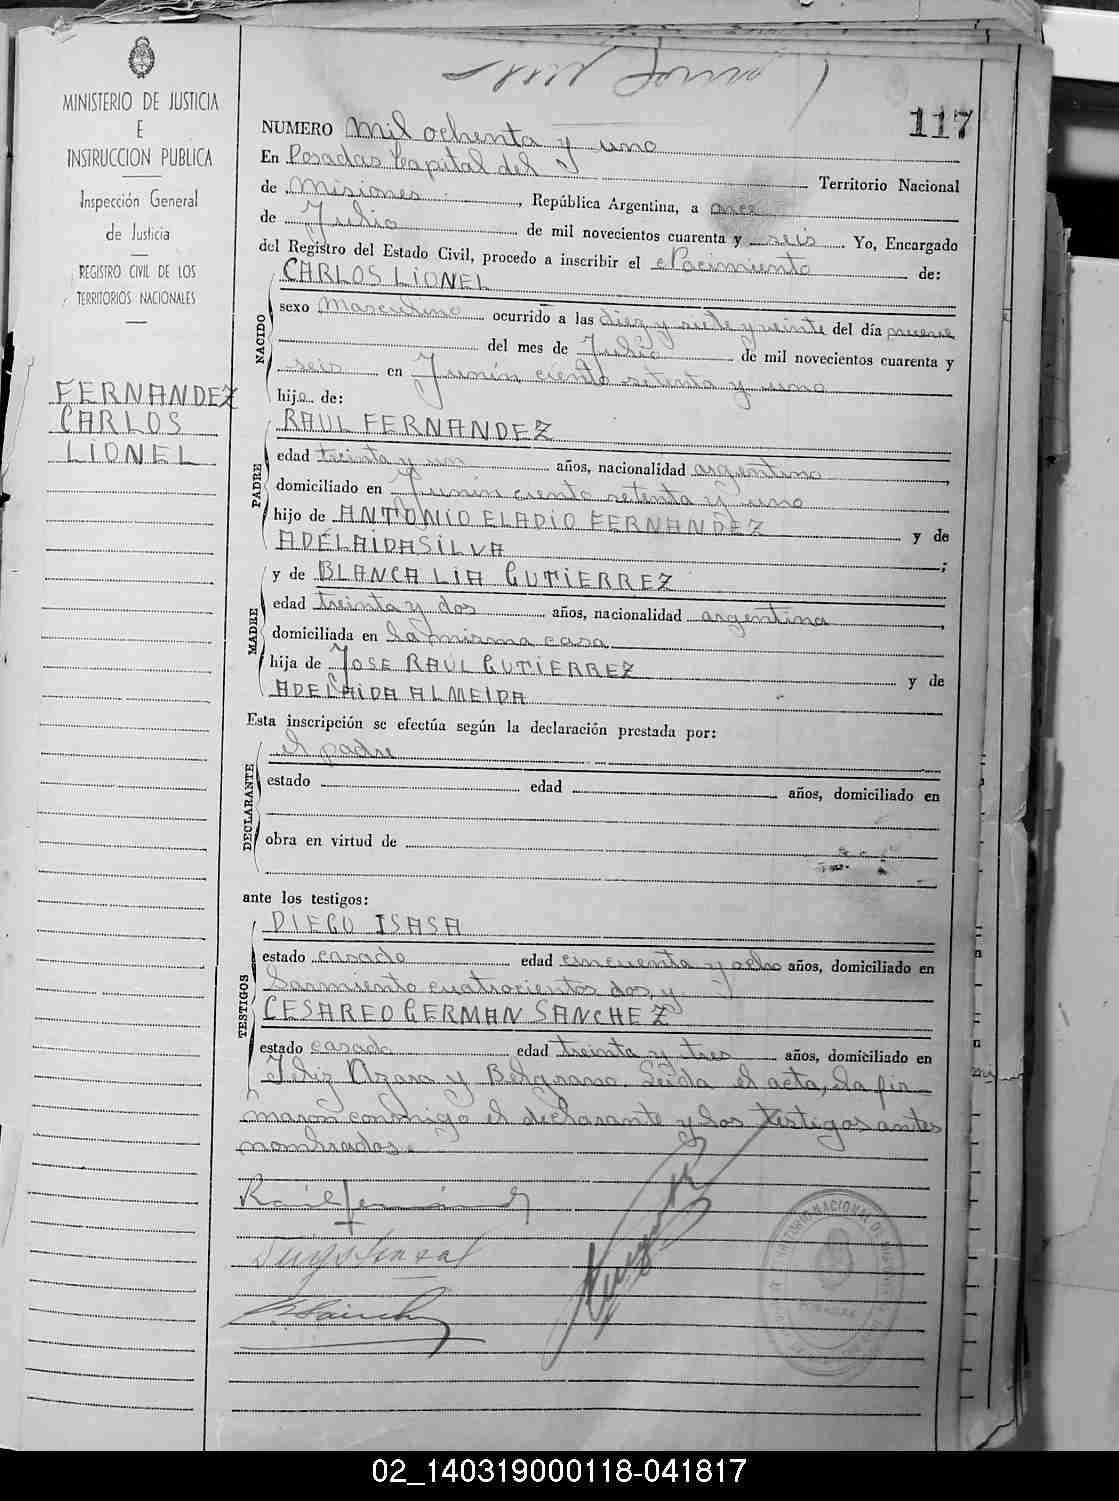 MINISTERIO DE JUSTICIA
E
INSTRUCCION PUBLICA
Inspección General
de Justicia
REGISTRO CIVIL DE LOS
TERRITORIOS NACIONALES
FERNANDEZ
CARLOS
LIONEL
117
NUMERO Mil ochenta y uno
En Posadas Capital del Territorio Nacional
de Misiones, República Argentina, a once
de Julio de mil novecientos cuarenta y seis. Yo, Encargado
del Registro del Estado Civil, procedo a inscribir el Nacimiento de:
NACIDO
CARLOS LIONEL
sexo Masculino ocurrido a las diez y siete y veinte del día nueve
del mes de Julio de mil novecientos cuarenta y
seis en Junín ciento setenta y uno
hijo de:
PADRE
RAUL FERNANDEZ
edad treinta y un años, nacionalidad argentino,
domiciliado en Junín ciento setenta y uno
hijo de ANTONIO ELADIO FERNANDEZ y de
ADELAIDA SILVA;
MADRE
y de BLANCA LIA GUTIERREZ
edad treinta y dos años, nacionalidad argentina,
domiciliada en la misma casa
hija de JOSE RAUL GUTIERREZ y de
ADELAIDA ALMEIDA
Esta inscripción se efectúa según la declaración prestada por:
DECLARANTE
el padre
estado edad años, domiciliado en
obra en virtud de
ante los testigos:
TESTIGOS
DIEGO ISASA
estado casado edad cincuenta y ocho años, domiciliado en
Sarmiento cuatrocientos dos, y
CESAREO GERMAN SANCHEZ
estado casado edad treinta y tres años, domiciliado en
Féliz Azara y Belgrano. Leída el acta, la fir
maron conmigo el declarante y los testigos antes
nombrados.
Raúl Fernández
02_140319000118-041817